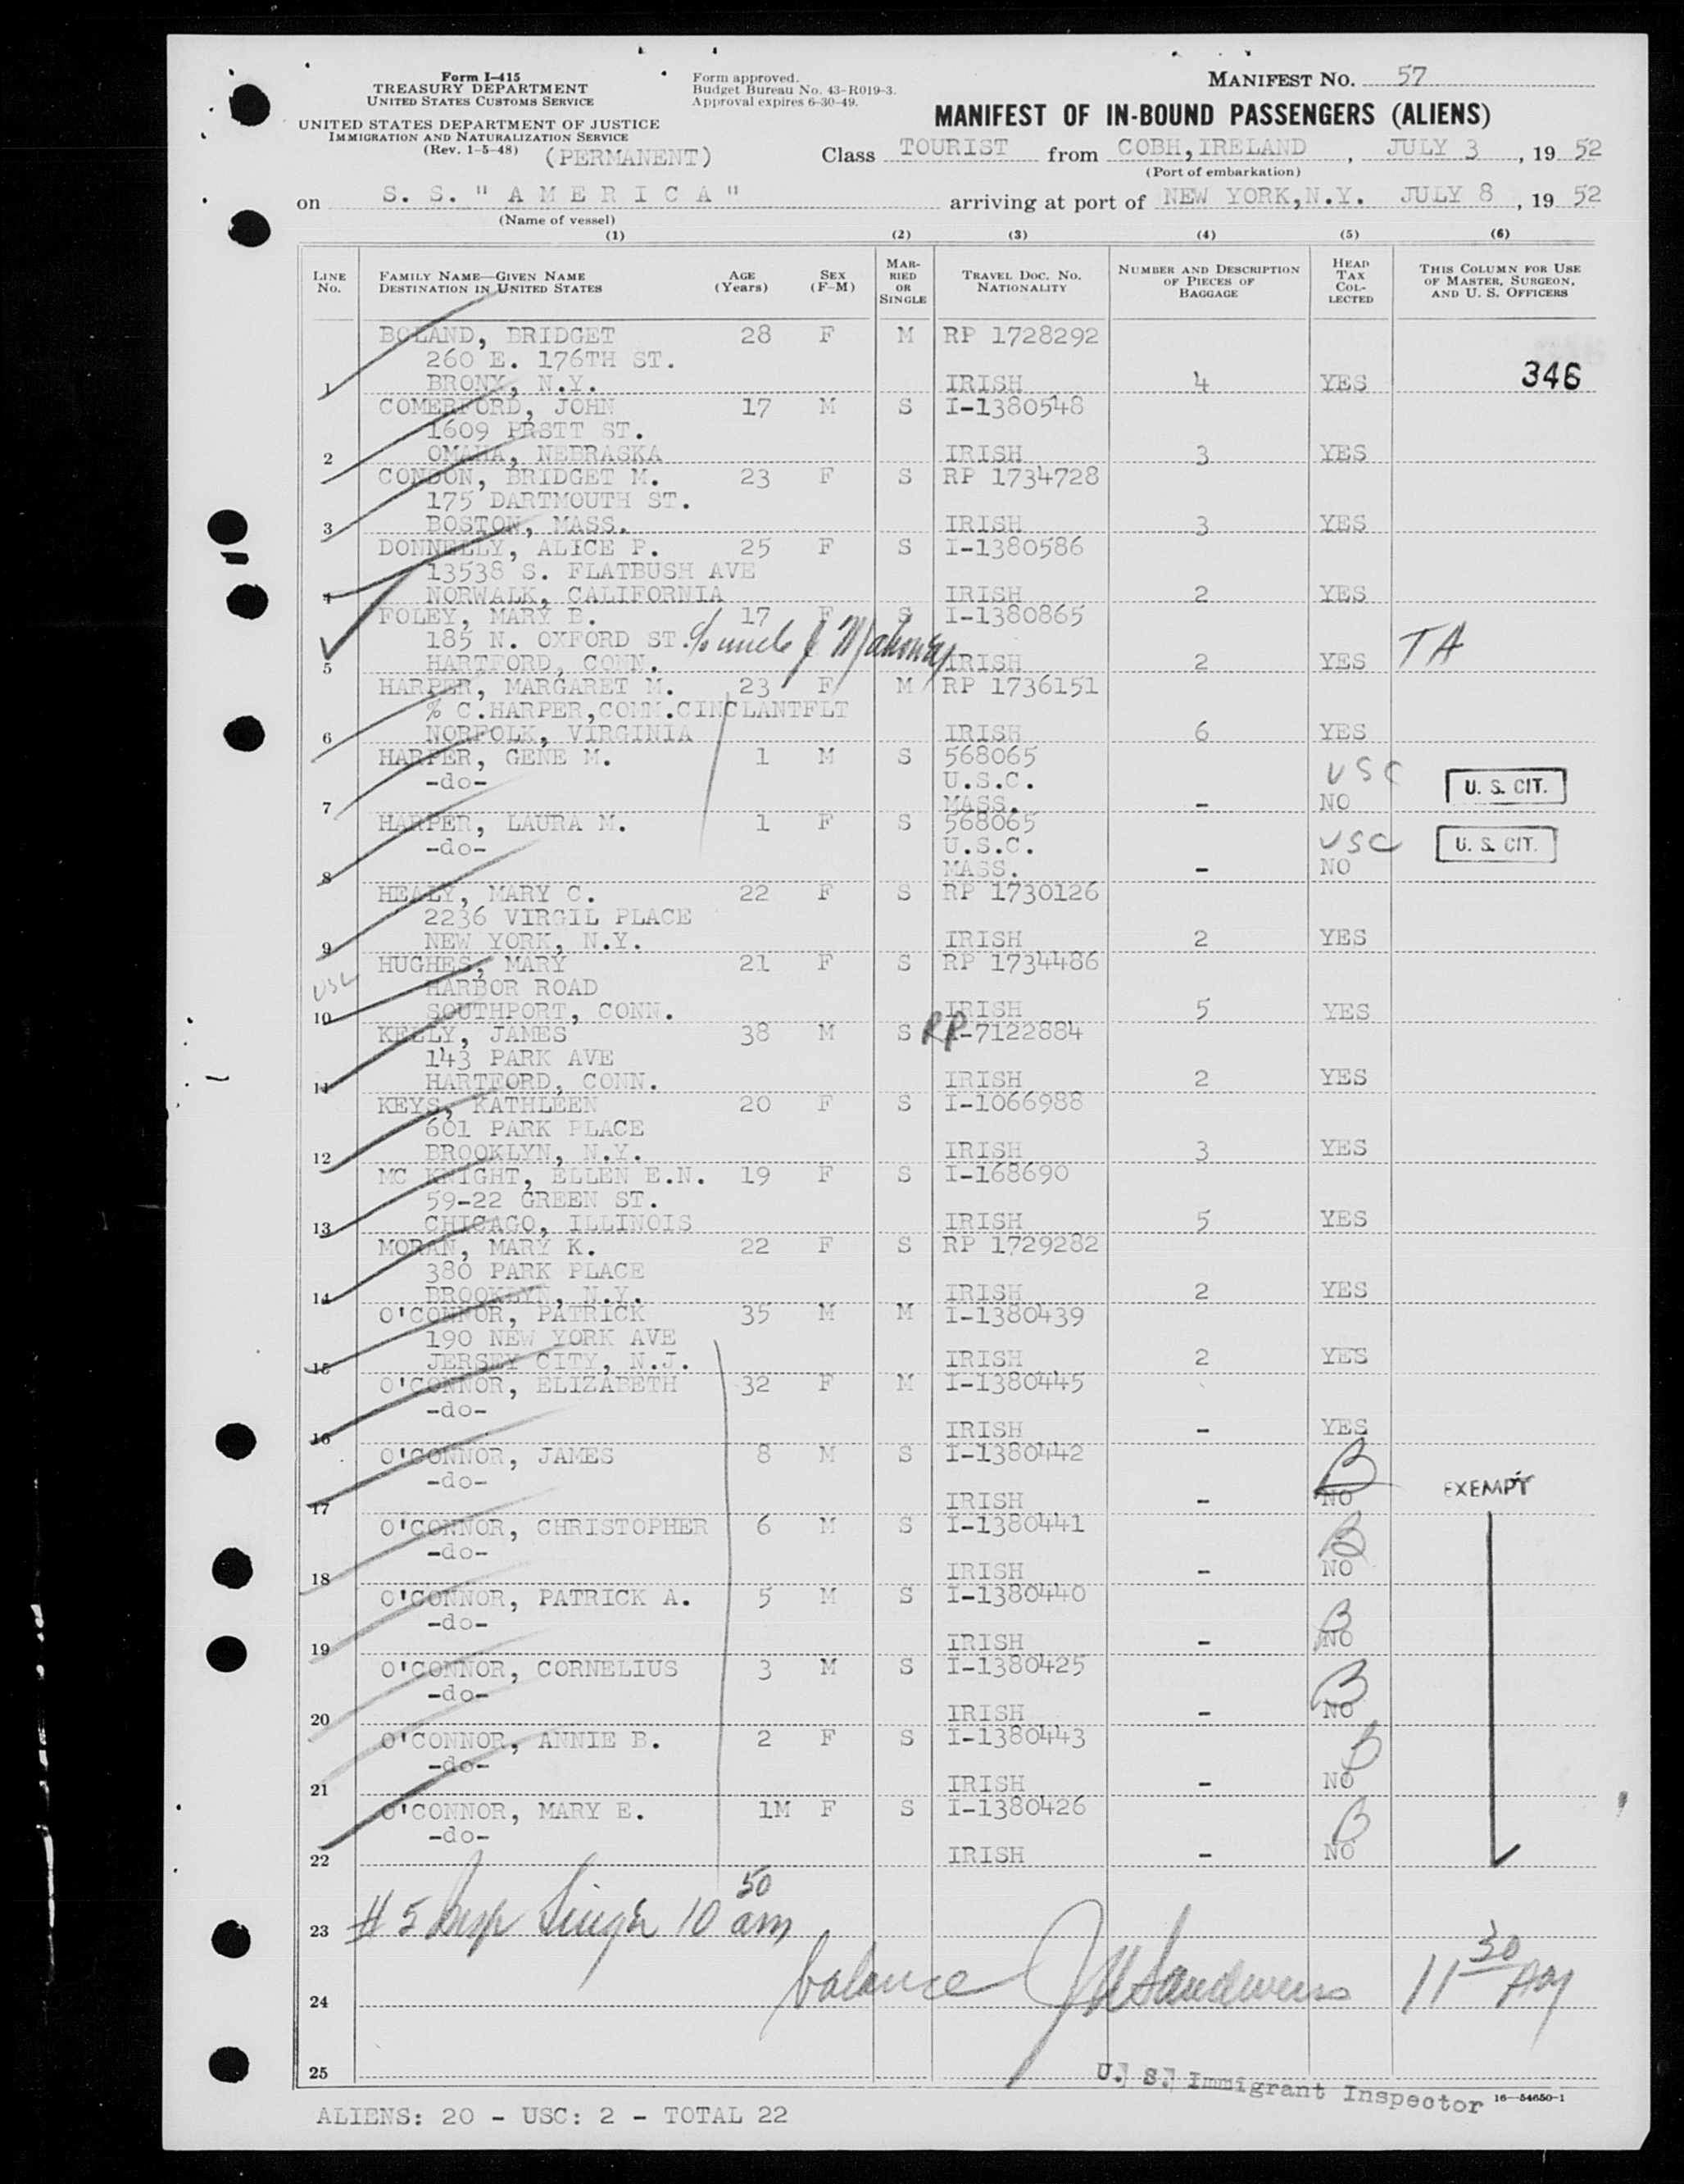 Form I-415
TREASURY DEPARTMENT
UNITED STATES CUSTOMS SERVICE
UNITED STATES DEPARTMENT OF JUSTICE
IMMIGRATION AND NATURALIZATION SERVICE
(Rev. 1-5-48) (PERMANENT)
Form approved.
Budget Bureau No. 43-R019-3.
Approval expires 6-30-49.
MANIFEST NO. 57
MANIFEST OF IN-BOUND PASSENGERS (ALIENS)
Class TOURIST from COBH, IRELAND, JULY 3, 19 52
(Port of embarkation)
on S. S. "AMERICA" arriving at port of NEW YORK, N.Y. JULY 8, 19 52
(Name of vessel)
(1) (2) (3) (4) (5) (6)
LINE NO. FAMILY NAME—GIVEN NAME DESTINATION IN UNITED STATES AGE (Years) SEX (F-M) MARRIED OR SINGLE TRAVEL DOC. NO. NATIONALITY NUMBER AND DESCRIPTION OF PIECES OF BAGGAGE HEAD TAX COLLECTED THIS COLUMN FOR USE OF MASTER, SURGEON, AND U. S. OFFICERS
BOLAND, BRIDGET 28 F M RP 1728292
260 E. 176TH ST.
1 BRONX, N.Y. IRISH 4 YES 346
COMERFORD, JOHN 17 M S I-1380548
1609 PRSTT ST.
2 OMAHA, NEBRASKA IRISH 3 YES
CONDON, BRIDGET M. 23 F S RP 1734728
175 DARTMOUTH ST.
3 BOSTON, MASS. IRISH 3 YES
DONNELLY, ALICE P. 25 F S I-1380586
13538 S. FLATBUSH AVE
4 NORWALK, CALIFORNIA IRISH 2 YES
FOLEY, MARY B. 17 F S I-1380865
185 N. OXFORD ST. c/o uncle J Mahoney
5 HARTFORD, CONN. IRISH 2 YES TA
HARPER, MARGARET M. 23 F M RP 1736151
% C.HARPER,COMM.CINCLANTFLT
6 NORFOLK, VIRGINIA IRISH 6 YES
HARPER, GENE M. 1 M S 568065
-do- U.S.C. USC U. S. CIT.
7 MASS. - NO
HARPER, LAURA M. 1 F S 568065
-do- U.S.C. USC U. S. CIT.
8 MASS. - NO
HEALY, MARY C. 22 F S RP 1730126
2236 VIRGIL PLACE
9 NEW YORK, N.Y. IRISH 2 YES
HUGHES, MARY 21 F S RP 1734486
USC HARBOR ROAD
10 SOUTHPORT, CONN. IRISH 5 YES
KELLY, JAMES 38 M S RP I-7122884
143 PARK AVE
11 HARTFORD, CONN. IRISH 2 YES
KEYS, KATHLEEN 20 F S I-1066988
601 PARK PLACE
12 BROOKLYN, N.Y. IRISH 3 YES
MC KNIGHT, ELLEN E.N. 19 F S I-168690
59-22 GREEN ST.
13 CHICAGO, ILLINOIS IRISH 5 YES
MORAN, MARY K. 22 F S RP 1729282
380 PARK PLACE
14 BROOKLYN, N.Y. IRISH 2 YES
O'CONNOR, PATRICK 35 M M I-1380439
190 NEW YORK AVE
15 JERSEY CITY, N.J. IRISH 2 YES
O'CONNOR, ELIZABETH 32 F M I-1380445
-do-
16 IRISH - YES
O'CONNOR, JAMES 8 M S I-1380442
-do- B EXEMPT
17 IRISH - NO
O'CONNOR, CHRISTOPHER 6 M S I-1380441
-do- B
18 IRISH - NO
O'CONNOR, PATRICK A. 5 M S I-1380440
-do- B
19 IRISH - NO
O'CONNOR, CORNELIUS 3 M S I-1380425
-do- B
20 IRISH - NO
O'CONNOR, ANNIE B. 2 F S I-1380443
-do- B
21 IRISH - NO
O'CONNOR, MARY E. 1M F S I-1380426
-do- B
22 IRISH - NO
23 # 5 Insp Singer 10 50 am
24 balance 11 30 AM
25
U. S. Immigrant Inspector 16—54650-1
ALIENS: 20 - USC: 2 - TOTAL 22